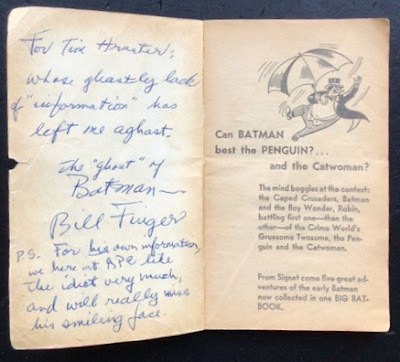 For Tim
whose ghastly lack
of "information" has
left me aghast.
The "ghost" of
Batman—
Bill Finger
P.S. For his own information,
we here at APC like
the idiot very much,
and will really miss
his smiling face.
Can BATMAN
best the PENGUIN?...
and the Catwoman?
The mind boggles at the contest:
the Caped Crusaders, Batman
and the Boy Wonder, Robin,
battling first one—then the
other—of the Crime World's
Gruesome Twosome, the Pen-
guin and the Catwoman.
From Signet come five great ad-
ventures of the early Batman
now collected in one BIG BAT-
BOOK.